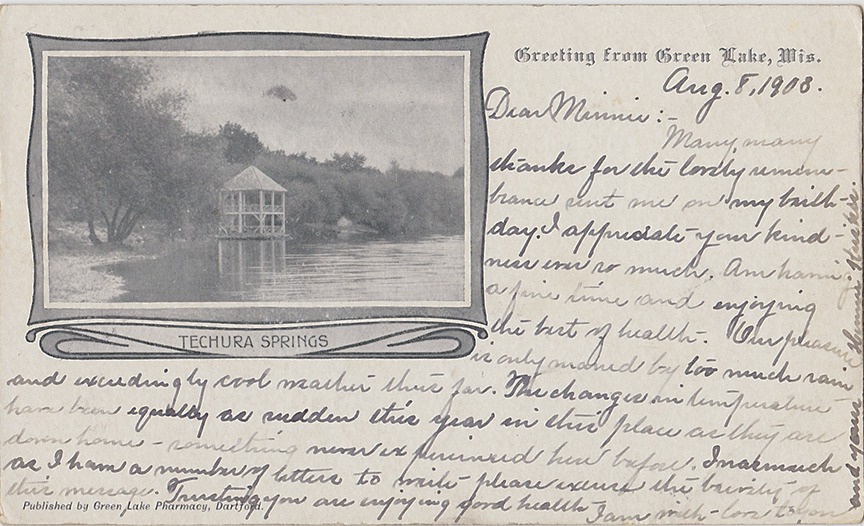 Greeting from Green Lake, Wis.
Aug. 8, 1903.
Dear Minnie:-
Many, many
thanks for the lovely remem-
brance sent me on my birth-
day. I appreciate your kind-
ness ever so much. Am having
a fine time and enjoying
the best of health. Our pleasure
is only marred by too much rain
and exceedingly cool weather thus far. The changes in temperature
have been equally as sudden this year in this place as they are
down home - something never experienced here before. Inasmuch
as I have a number of letters to write please excuse the brevity of
this message. Trusting you are enjoying good health
I am with love to you
and yours
TECHURA SPRINGS
Published by Green Lake Pharmacy, Dartford.